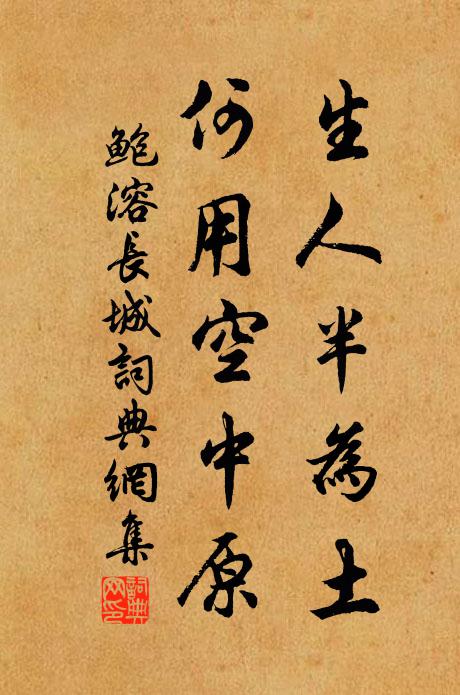 生人半為土
何用空中原
鲍溶長城詞典網集
詞典
网印